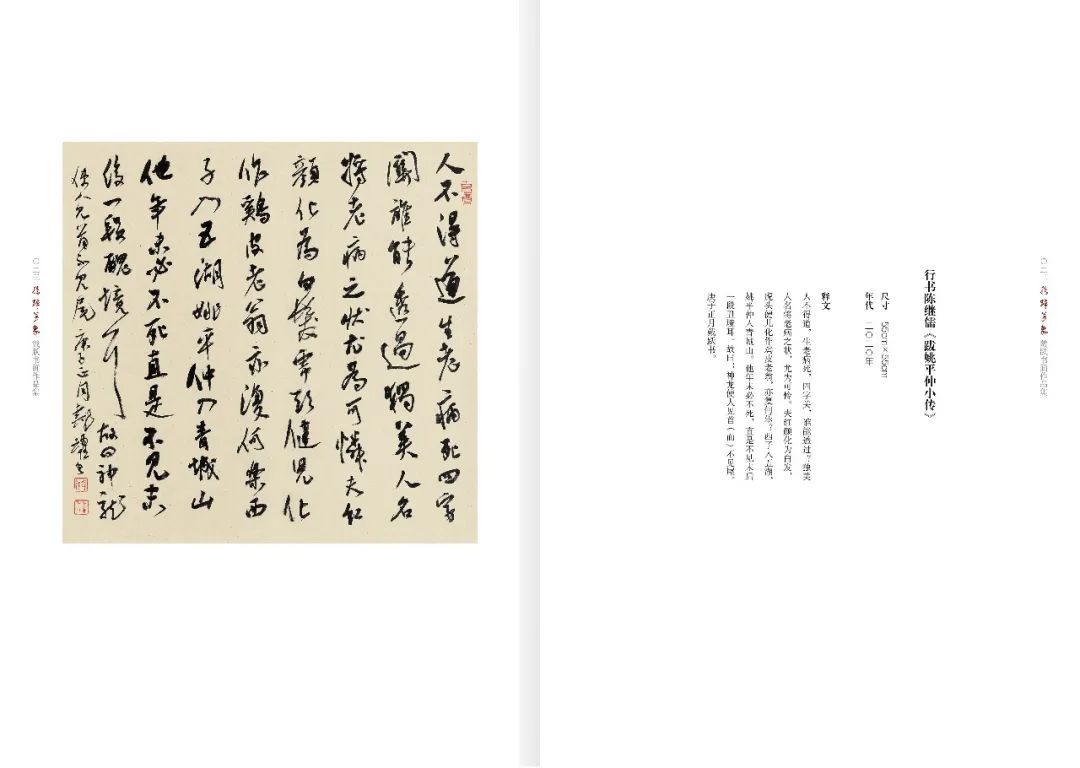 行书陈继儒《跋姚平仲小传》
尺寸 55cm×55cm
年代 二〇二〇年
释文
人不得道，生老病死，四字关，谁能透过？独美
人名将老病之状，尤为可怜。夫红颜化为白发，
虎头健儿化作鸡皮老翁，亦复何乐？西子入五湖，
姚平仲入青城山。他年未必不死，直是不见末后
一段丑境耳。故曰：神龙使人见首（而）不见尾。
庚子正月戴跃书。
人不得道生老病死四字
關誰能透過獨美人名
將老病之状尤為可憐夫紅
顏化為白髮虎頭健兒化
作鷄皮老翁亦復何樂西
子入五湖姚平仲入青城山
他年未必不死直是不見末
後一段醜境耳故曰神龍
使人見首不見尾庚子正月戴躍書
书画作品集
书画作品集